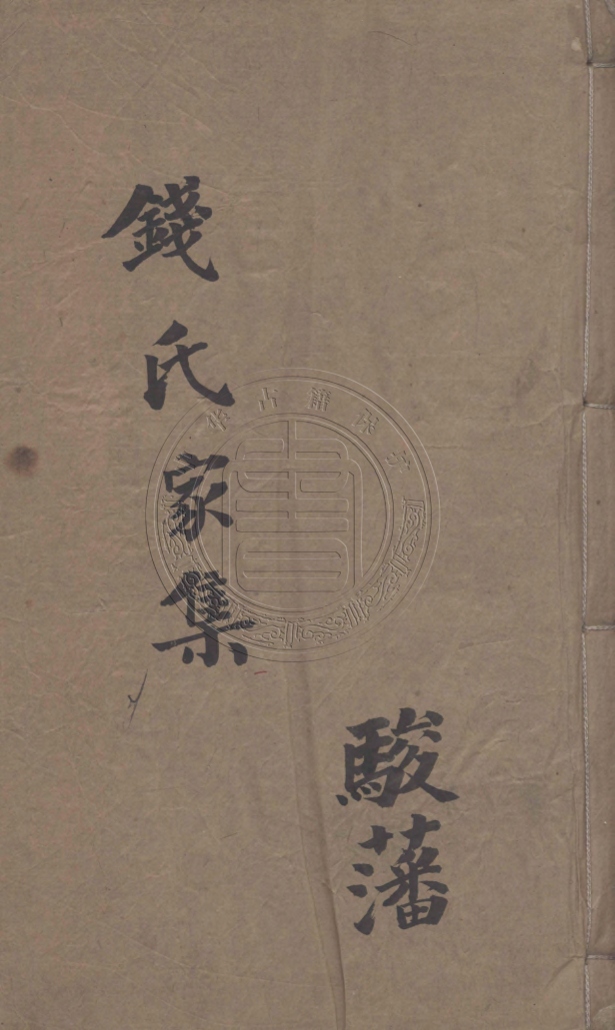 駿藩
錢氏家集